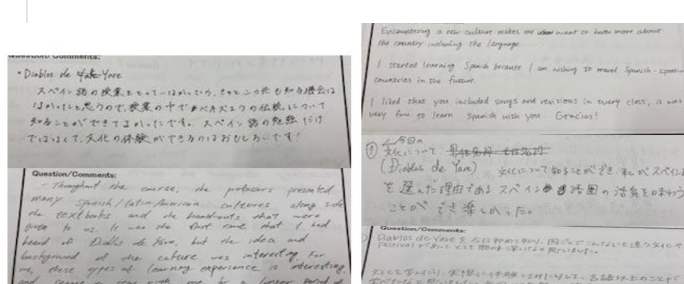 Question/Comments:
・Diablos de Yare
スペイン語の授業をとっていなかったら、きっとこの先も知る機会は
なかったと思うので、授業の中でベネズエラの伝統について
知ることができてよかったです。スペイン語の勉強だけ
ではなくて、文化の体験ができるのはおもしろいです!
Question/Comments:
- Throughout the course, the professors presented
many Spanish/Latin American cultures along side
the textbooks and the handouts that were
given to us. It was the first time that I had
heard of Diablos de Yare, but the idea and
background of the culture was interesting. For
me, these types of learning experience is interesting,
Encountering a new culture makes me want to know more about
the country including the language.
I started learning Spanish because I am wishing to travel Spanish-
countries in the future.
I liked that you included songs and revisions in every class, it was
very fun to learn Spanish with you. Gracias!
① 今日の
文化について
(Diablos de Yare) 文化について知ることができ、私がスペイン
を選んだ理由であるスペイン語圏の活気を味わう
ことができ楽しかった。
Question/Comments:
Diablos de Yareを今日初めて知り、